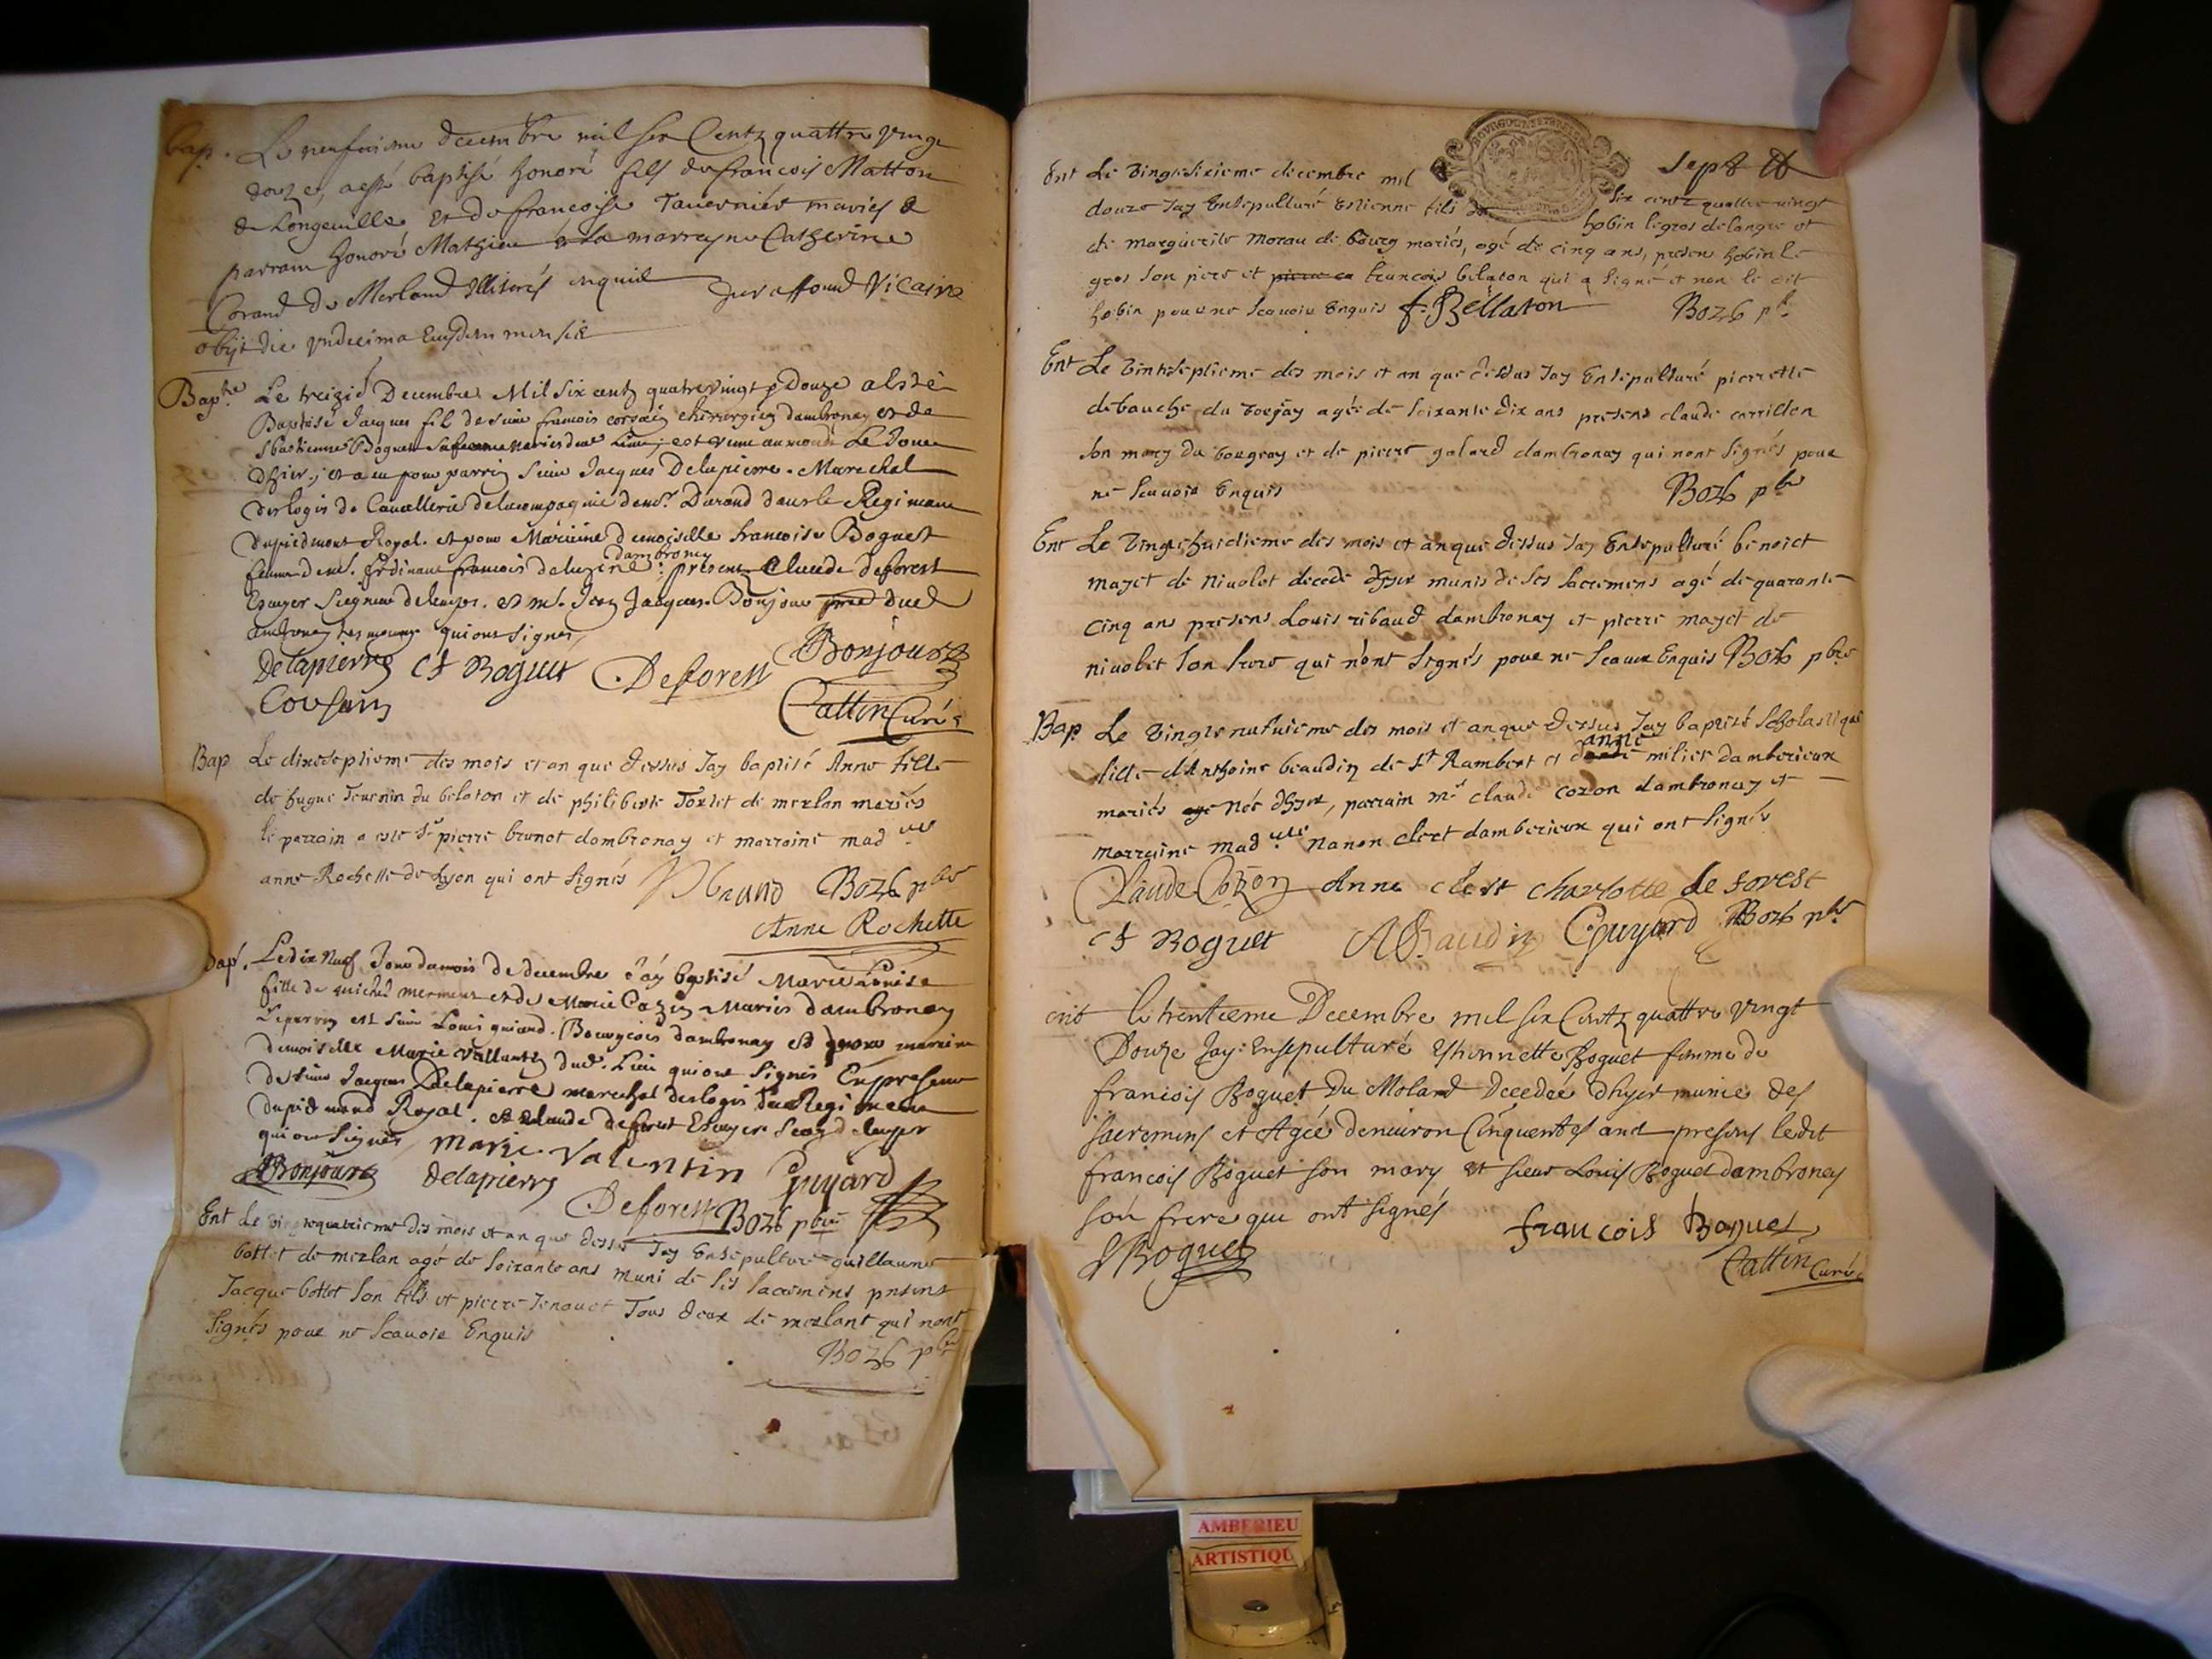 Bap. Le neufuieme decembre mil six Centz quattre vingt
douze, a esté baptisé honoré fils de francois Matton
de Longeuille et de francoise Tauernier mariés &
parrain honoré Mathieu & la marreyne Catherine
Corand de Merland Illiterés enquis Vicaire
obijt die vndecima Eiusdem mensis
Bapte Le treizie Decembre Mil six cents quatre vingt & Douze a esté
Baptisé Jacques fil de sieur francois corsain chirurgien dambronay et de
Boguet mariés dud lieu, est venu au monde Le Jour
dhier, et a eu pour parrin sieur Jacques Delapierre Marechal
des logis de Cauallerie de la compagnie de mr. Durand dans le Regiment
du piedmont Royal. et pour Marieine demoiselle francoise Boguet
dambronay
femme de francois presens Claude deforest
Escuyer Seigneur et mr. Jean Jacques Bonjour dud
ambronay qui ont signés
Delapierre Cf Boguet Deforest Bonjour
Corsain Cattin Curé
Bap Le dixseptieme des mois et an que dessus Jay baptisé Anne fille
de hugue Teuenin du belaton et de philiberte Torlet de merlan mariés
le parrain a este sr pierre brunot dambronay et marraine madlle
anne Rochette de Lyon qui ont signés Bozo pbre
Anne Rochette
bap. Le dix Neuf Jour du mois de decembre Jáy baptisé Marie Louise
fille de michel mermet et de Marie Cozon Mariés dambronay
Le parrin est sieur Louis guiard Bourgeois dambronay et pour marieine
demoiselle Marie vallantin dud. Lieu qui ont signés En presence
de sieur Jacques Delapierre marechal des logis du Regiment
du piedmond Royal. et claude deforest Escuyer
qui ont signés marie valentin Guyard
Bonjour delapierre
Deforest Bozo pbre
Ent Le vingtequatrieme des mois et an que dessus Jay Ensepulturé guillaume
bottet de merlan agé de soixante ans muni de ses sacremens presens
Jacque bottet son fils et pierre Tenauet Tous deux de merlant qui nont
signés pour ne scauoir Enquis
Bozo pbre
Sept
Ent Le vingtesixieme decembre mil six centz quattre vingt
douze Jay Ensepulturé Estienne fils de hobin legros delangre et
de marguerite morau de bourg mariés, agé de cinq ans, presens hobin le
gros son pere et francois belaton qui a signé et non le dit
hobin pour ne scauoir Enquis f. Bellaton Bozo pb
Ent Le vintseptieme des mois et an que dessus Jay Ensepulturé pierrette
debauche du vorjay agée de soixante dix ans presens claude carrillon
son mary du vorgeay et de pierre galard dambronay qui nont signés pour
ne scauoir Enquis Bozo pbre
Ent Le vingtehuictieme des mois et an que dessus Jay Ensepulturé benoict
mayet de niuolet decede dhyer munis de ses sacremens agé de quarante
cinq ans presens Louis ribaud dambronay et pierre mayet de
niuolet son frere qui n'ont signés pour ne scauoir Enquis Bozo pbre
Bap. Le vingtenufuieme des mois et an que dessus Jay baptisé scholastique
anne
fille d'Anthoine beaudin de st Rambert et milier damberieux
mariés Née dhyer, parrain mr claude cozon dambronay et
marraine madlle nanon clert damberieux qui ont signés
Claude Cozon Anne clert charlotte de forest
Cf Boguet Baudin Guyard Bozo pbr
ent le trentieme Decembre mil six Centz quattre vingt
Douze Jay Ensepulturé Esthiennette Boguet femme de
francois Boguet Du Moland Decedée dhyer munie des
sacremens et Agée denuiron Cinquentes ans presens ledit
francois Boguet son mary et sieur Louis Boguet dambroney
son frere qui ont signés
Boguet francois Boguet
Cattin Curé
AMBERIEU
ARTISTIQU